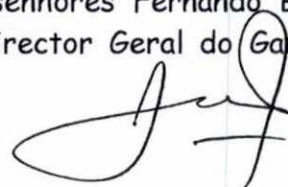 senhores Fernando
rector Geral do Ga